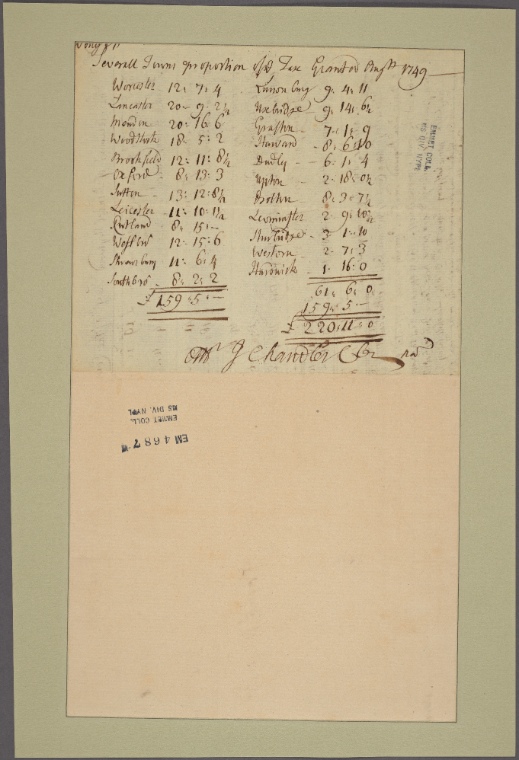 Severall Towns proportion of ye Tax Granted Augtt 1749
Worcester 12: 7: 4
Lancaster 20 - 9: 2½
Mendon 20: 16: 6
Woodstock 18: 5: 2
Brookfield 12: 11: 8½
Oxford - 8: 13: 3
Sutton - 13: 12: 8½
Leicester - 11: 10: 11½
Rutland 8: 15: -
Westbro 12: 15: 6
Shrewsbury 11: 6: 4
Southbro - 8: 2: 2
£ 159: 5: -
Lunenburg 9: 4: 11
Uxbridge 9: 14: 6½
Grafton - 7: 1: 9
Harvard - 8: 6: 10
Dudley - 6: 1: 4
Upton - 2: 18: 0½
Bolton 8: 3: 7½
Leominster 2: 9: 10½
Sturbridge - 3: 1: 10
Western 2: 7: 3
Hardwick 1: 16: 0
61: 6: 0
159: 5: -
£ 220: 11: 0
J Chandler
EMMET COLL.
MS DIV. NYPL
EMMET COLL.
MS DIV. NYPL
EM 4687